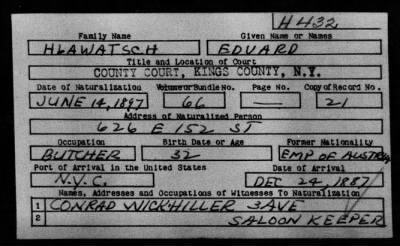 H432
Family Name Given Name or Names
HLAWATSCH EDUARD
Title and Location of Court
COUNTY COURT, KINGS COUNTY, N.Y.
Date of Naturalization Volume or Bundle No. Page No. Copy of Record No.
JUNE 14, 1897 66 — 21
Address of Naturalized Person
626 E 152 ST
Occupation Birth Date or Age Former Nationality
BUTCHER 32 EMP OF AUSTRIA
Port of Arrival in the United States Date of Arrival
N.Y.C. DEC 24, 1887
Names, Addresses and Occupations of Witnesses To Naturalization
1 CONRAD WICKHILLER 3AVE
2 SALOON KEEPER